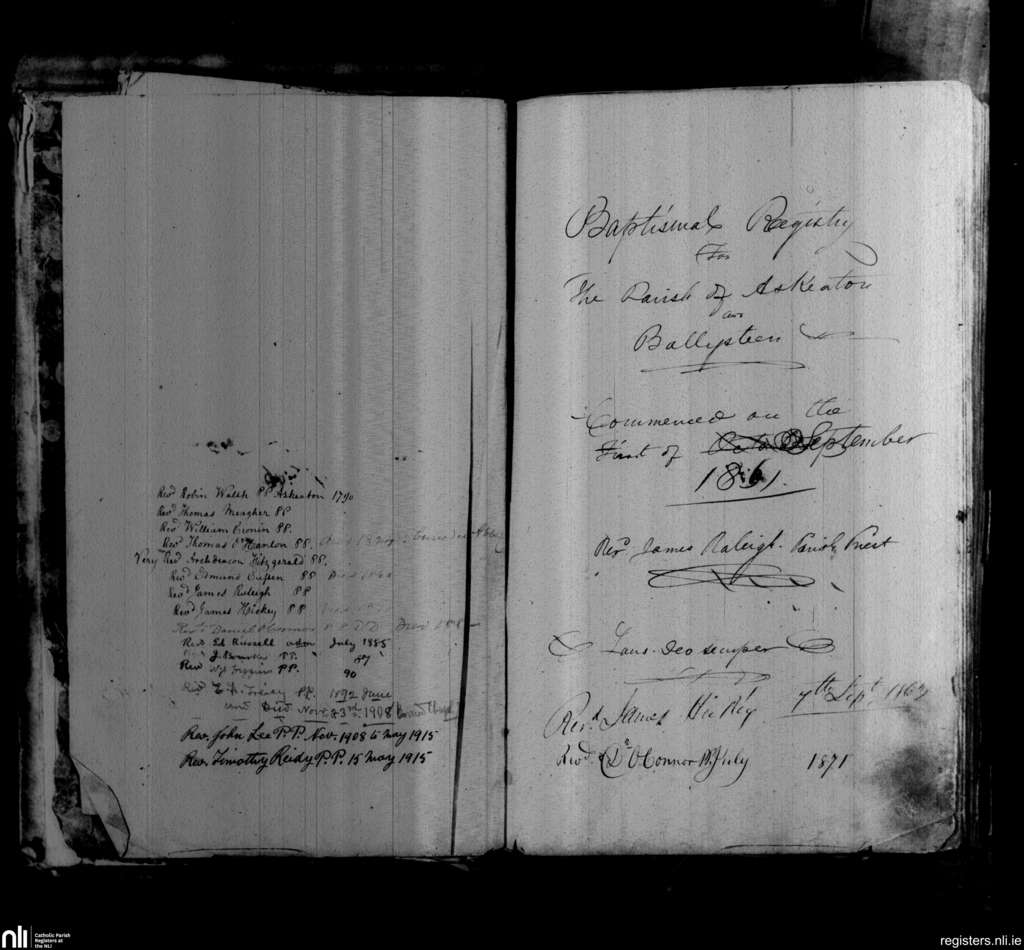 Revd Robin Walsh PP Askeaton 1790
Revd Thomas Meagher PP
Revd William Cronin PP.
Revd Thomas O'Hanlon PP.
Very Revd Archdeacon Fitzgerald PP.
Revd Edmund Cussen PP Died
Revd James Raleigh PP
Revd James Hickey PP
Revd Daniel O'Connor P.P. Died
Revd Ed Russell adm July 1885
J. Bourke PP. " 87
Revd PP. 90
Revd PP. 1892 June
and Died Nov. 3rd 1908
Rev. John Lee P.P. Nov. 1908 to May 1915
Rev. Timothy Reidy P.P. 15 May 1915
Baptismal Registry
For
The Parish of Askeaton
and
Ballysteen
Commenced on the
First of September
1861.
Revd James Raleigh. Parish Priest
Laus Deo semper
Revd James Hickey 7th Sept 1862
Revd D. O'Connor July 1871
nli
Catholic Parish
Registers at
the NLI
registers.nli.ie